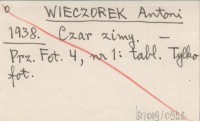 WIECZOREK Antoni
1938. Czar zimy. —
Prz. Fot. 4, nr 1: tabl. Tylko
fot.